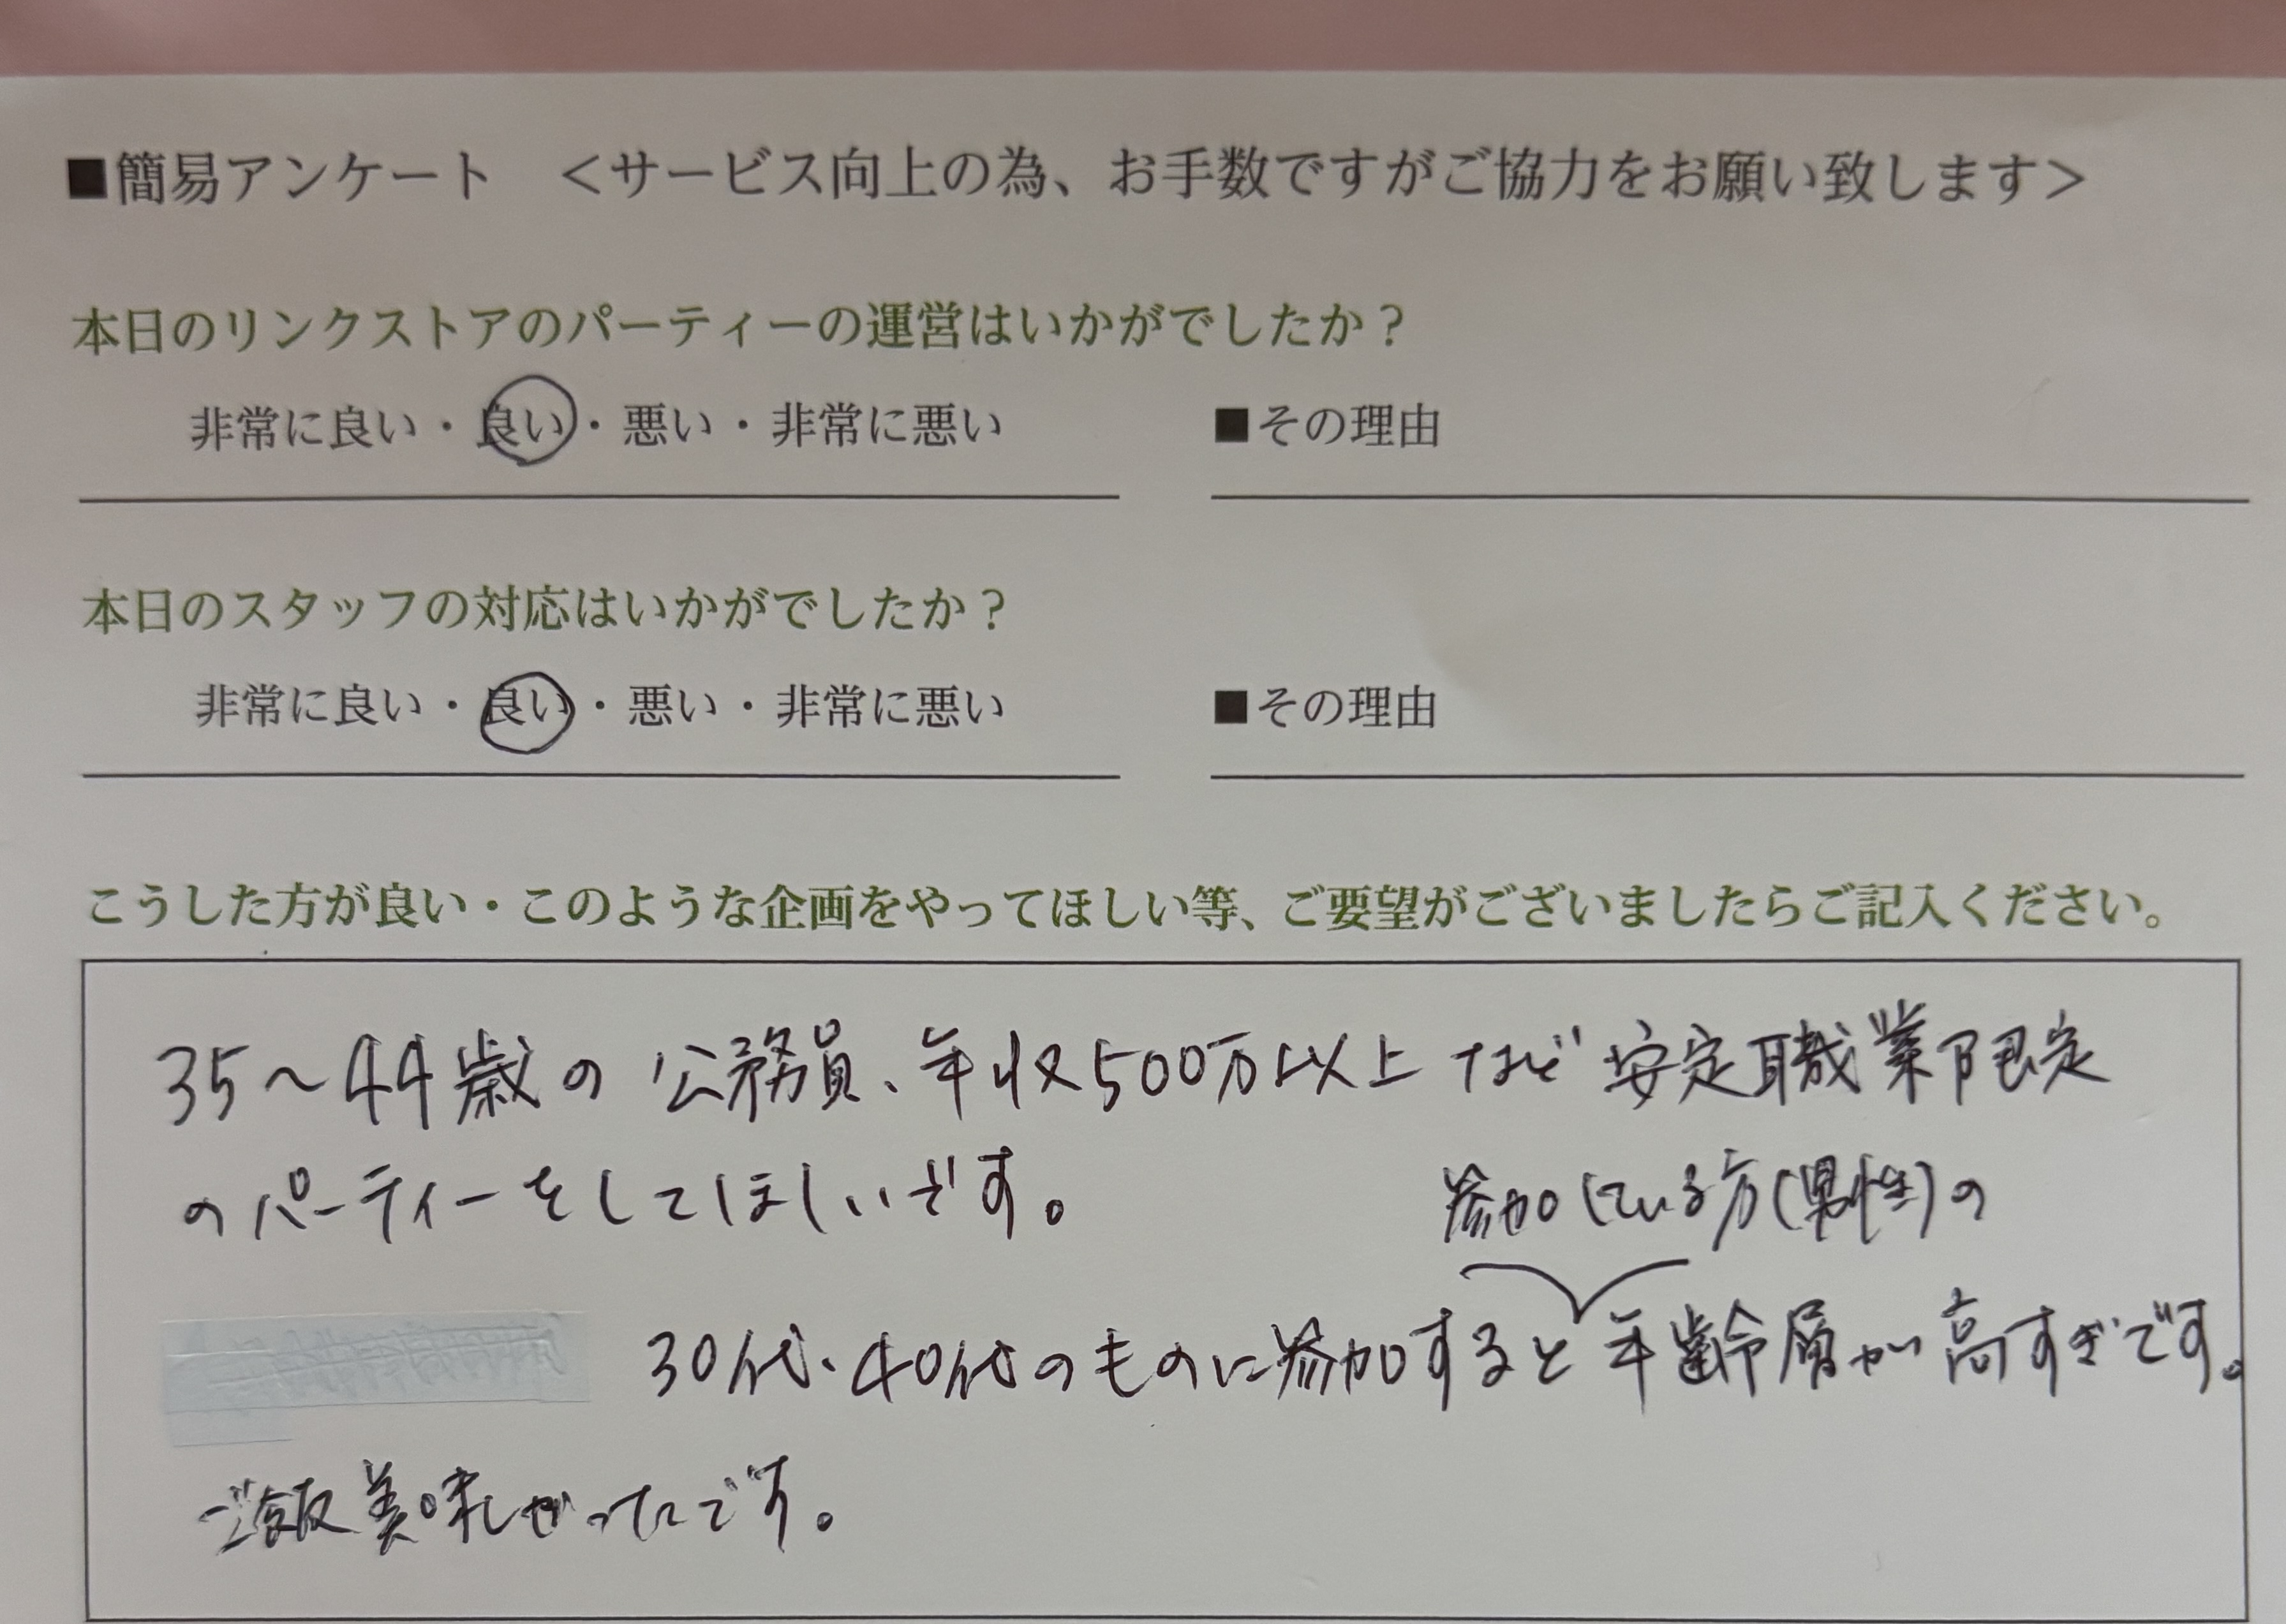 ■簡易アンケート　＜サービス向上の為、お手数ですがご協力をお願い致します＞
本日のリンクストアのパーティーの運営はいかがでしたか？
非常に良い・良い・悪い・非常に悪い　■その理由
本日のスタッフの対応はいかがでしたか？
非常に良い・良い・悪い・非常に悪い　■その理由
こうした方が良い・このような企画をやってほしい等、ご要望がございましたらご記入ください。
35～44歳の公務員、年収500万以上など安定職業限定
のパーティーをしてほしいです。
参加している方(男性)の
30代・40代のものに参加すると年齢層が高すぎです。
ご飯美味しかったです。